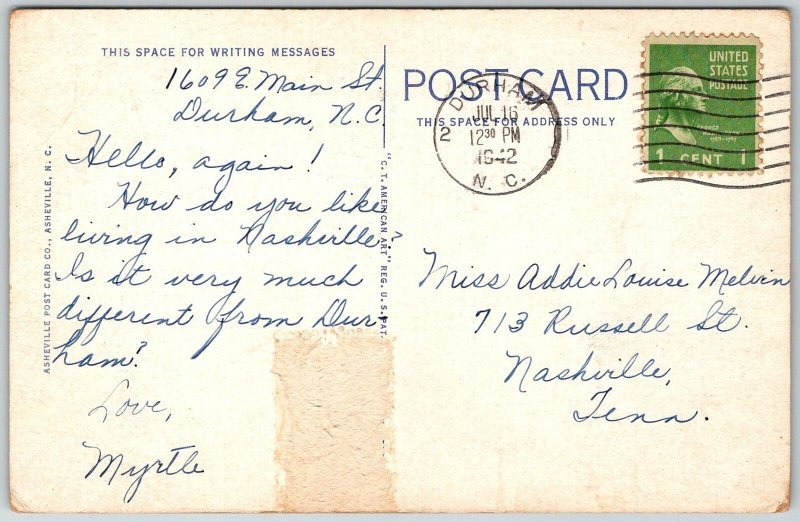 THIS SPACE FOR WRITING MESSAGES
1609 E. Main St.
Durham, N.C.
Hello, again!
How do you like
living in Nashville?
Is it very much
different from Dur-
ham?
Love,
Myrtle
ASHEVILLE POST CARD CO., ASHEVILLE, N. C.
"C. T. AMERICAN ART" REG. U. S. PAT.
POST CARD
THIS SPACE FOR ADDRESS ONLY
DURHAM
JUL 16
12 30 PM
1942
N. C.
2
1
UNITED
STATES
POSTAGE
1 CENT 1
Miss Addie Louise Melvin
713 Russell St.
Nashville,
Tenn.